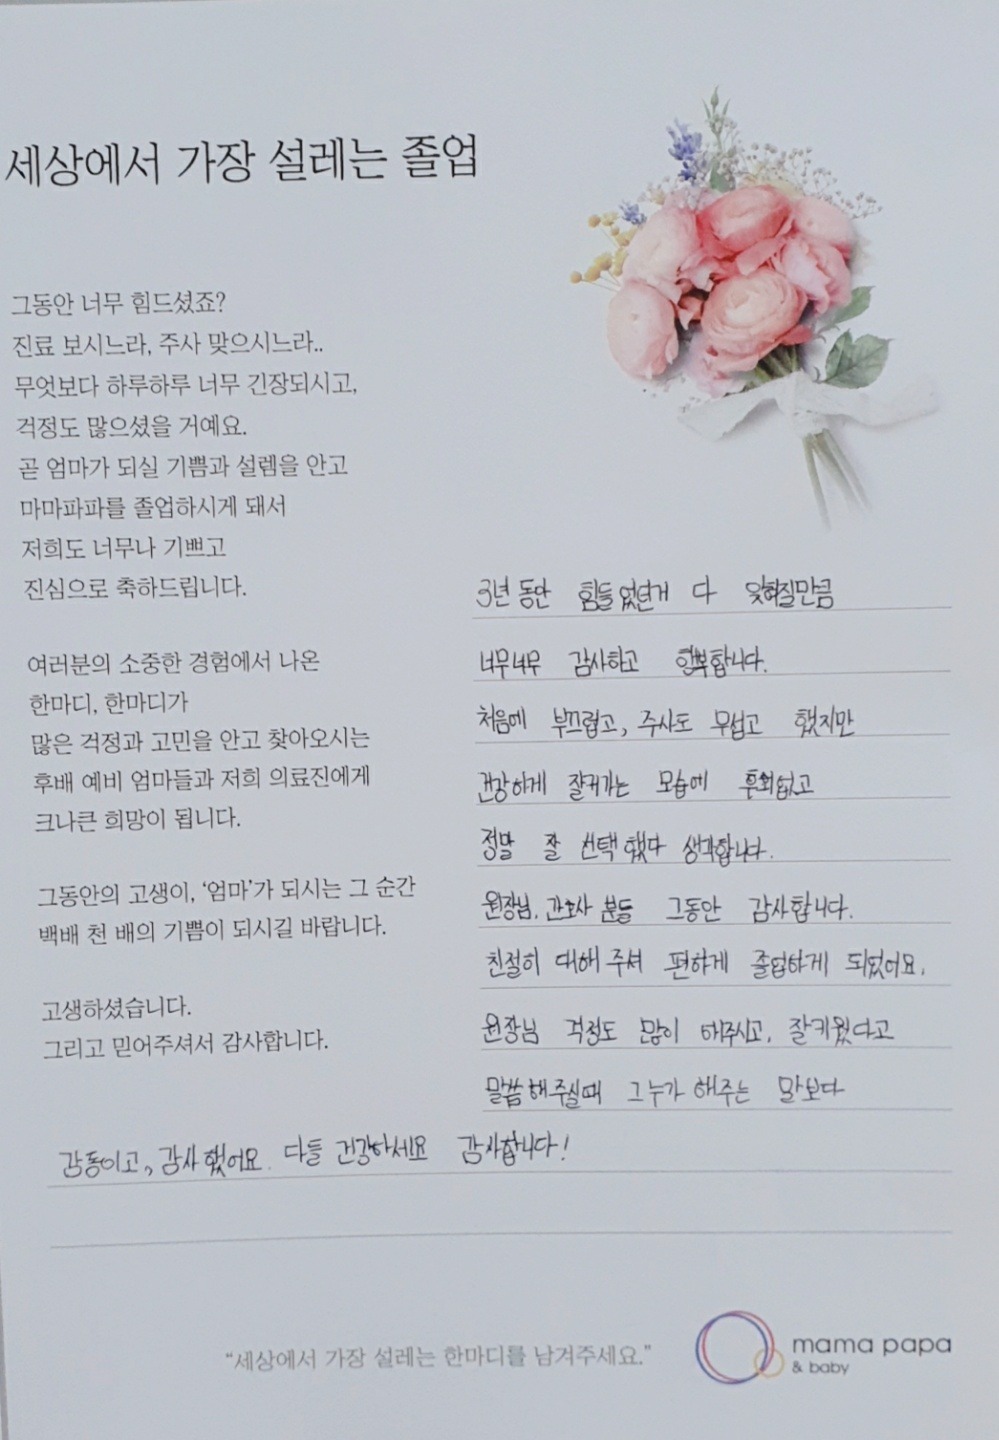 세상에서 가장 설레는 졸업
그동안 너무 힘드셨죠?
진료 보시느라, 주사 맞으시느라..
무엇보다 하루하루 너무 긴장되시고,
걱정도 많으셨을 거예요.
곧 엄마가 되실 기쁨과 설렘을 안고
마마파파를 졸업하시게 돼서
저희도 너무나 기쁘고
진심으로 축하드립니다.
여러분의 소중한 경험에서 나온
한마디, 한마디가
많은 걱정과 고민을 안고 찾아오시는
후배 예비 엄마들과 저희 의료진에게
크나큰 희망이 됩니다.
그동안의 고생이, ‘엄마’가 되시는 그 순간
백배 천 배의 기쁨이 되시길 바랍니다.
고생하셨습니다.
그리고 믿어주셔서 감사합니다.
3년 동안 힘들었던거 다 잊혀질만큼
너무너무 감사하고 행복합니다.
처음에 부끄럽고, 주사도 무섭고 했지만
건강하게 잘커가는 모습에 후회없고
정말 잘 선택했다 생각합니다.
원장님, 간호사 분들 그동안 감사합니다.
친절히 대해 주셔 편하게 졸업하게 되었어요.
원장님 걱정도 많이 해주시고, 잘키웠다고
말씀해주실때 그누가 해주는 말보다
감동이고, 감사했어요. 다들 건강하세요 감사합니다!
“세상에서 가장 설레는 한마디를 남겨주세요.”
mama papa
& baby